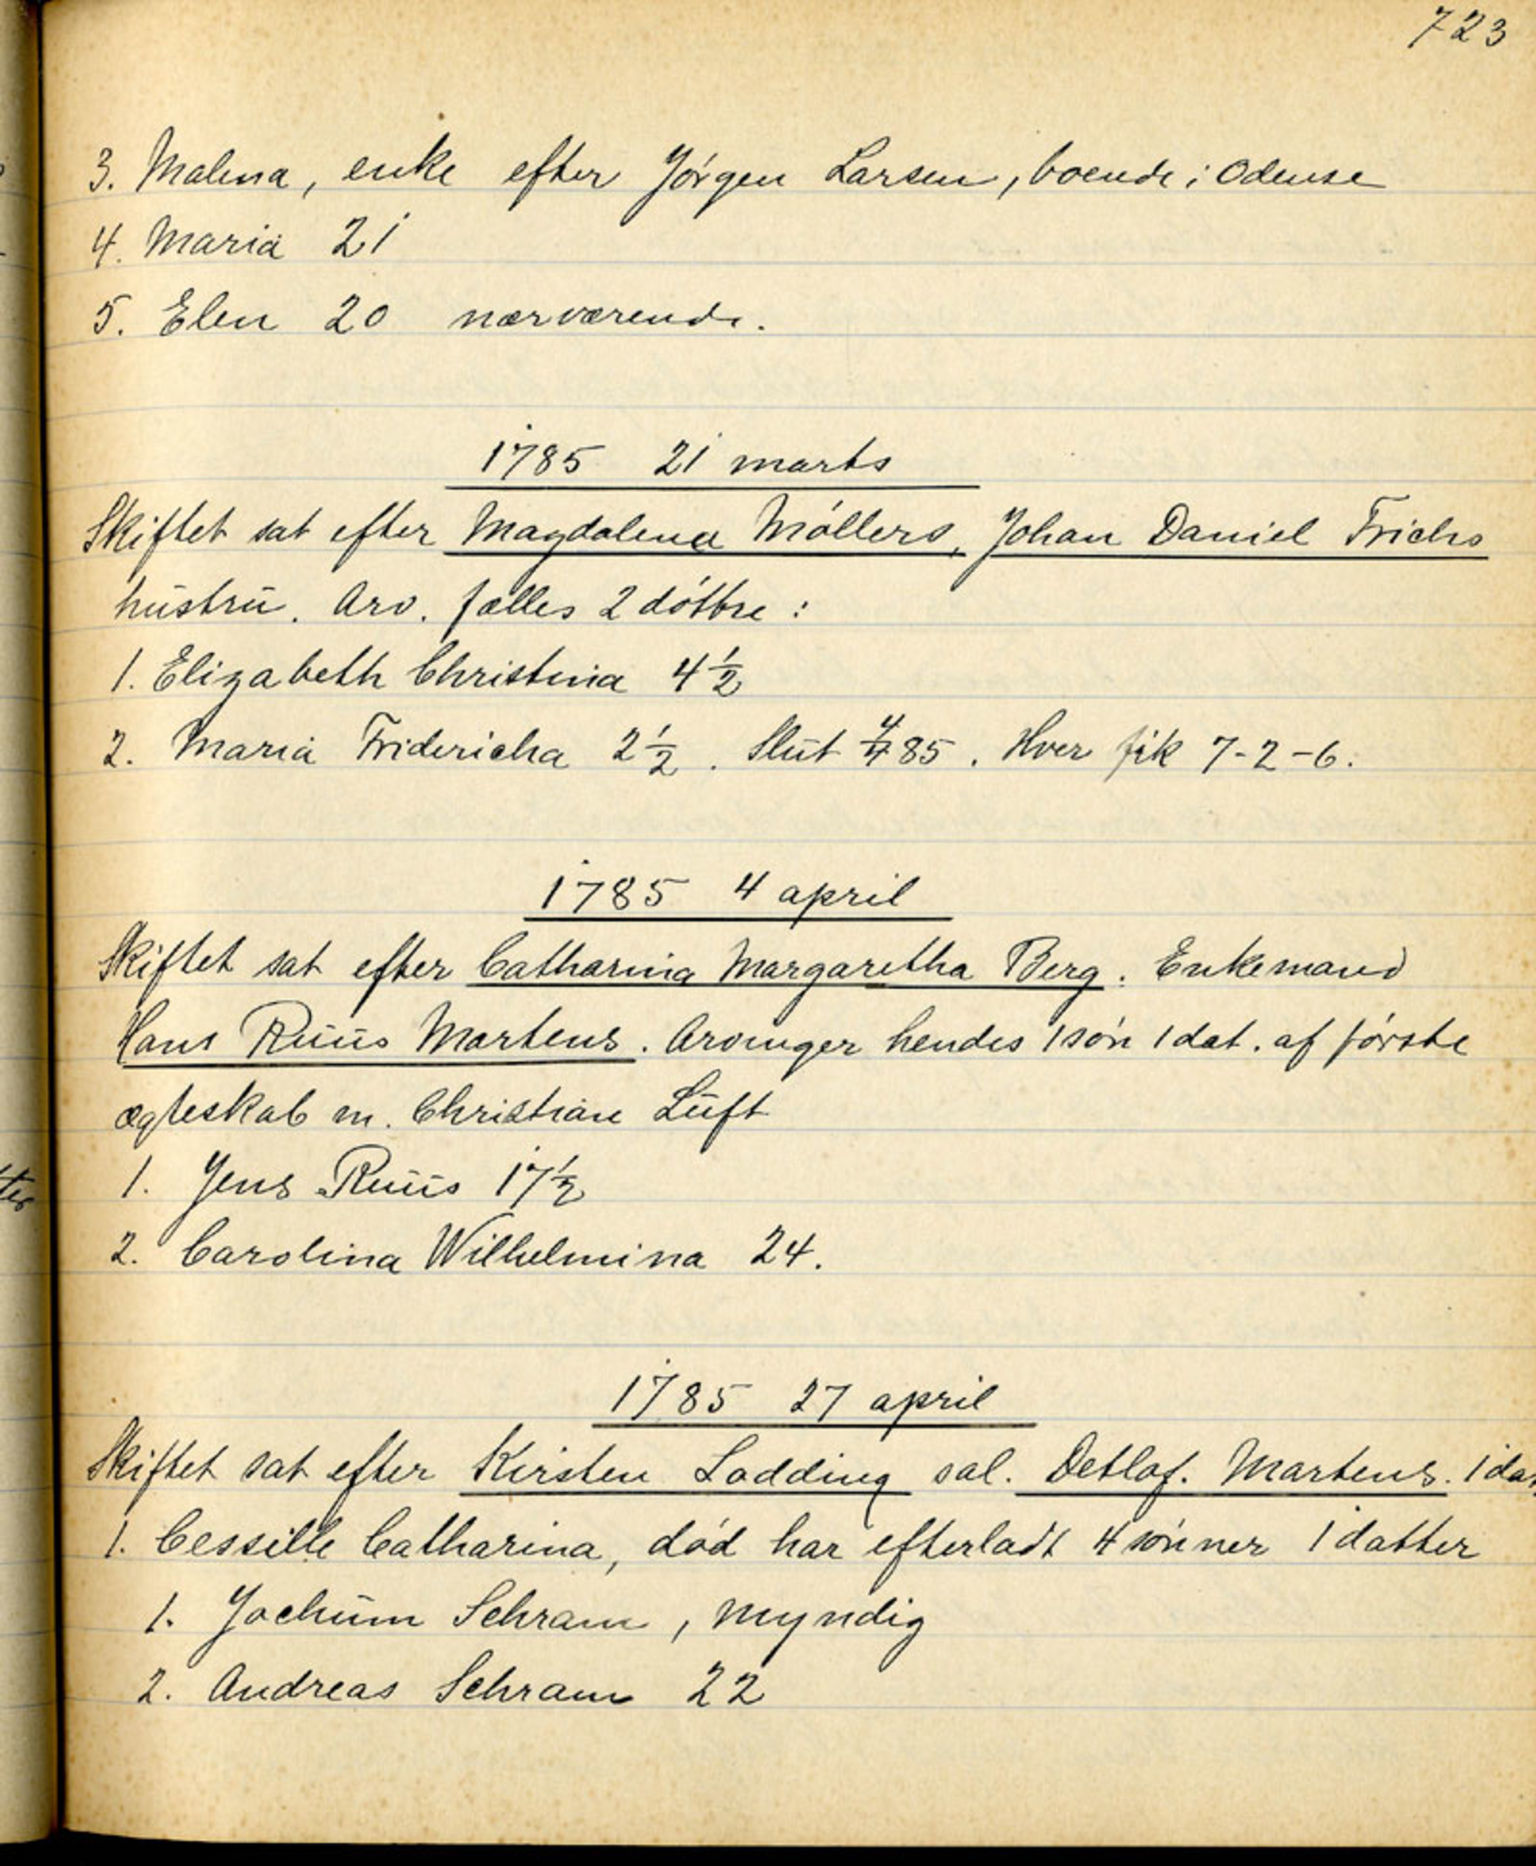 723
3. Malena, enke efter Jörgen Larsen, boende i Odense
4. Maria 21
5. Elen 20 nærværende.
1785 21 marts
Skiftet sat efter Magdalena Möllers, Johan Daniel Frichs
hustru. Arv. fælles 2 döttre :
1. Elizabeth Christina 4 1/2
2. Maria Fridericha 2 1/2. Slut 4/7 85. Hver fik 7-2-6.
1785 4 april
Skiftet sat efter Catharina Margaretha Berg. Enkemand
Hans Ruus Martens. Arvinger hendes 1 sön 1 dat. af förste
ægteskab m. Christian Luft
1. Jens Ruus 17 1/2
2. Carolina Wilhelmina 24.
1785 27 april
Skiftet sat efter Kirsten Lodding sal. Detlof. Martens. 1 dat.
1. Cessille Catharina, död har efterladt 4 sönner 1 datter
1. Jochum Schram, myndig
2. Andreas Schram 22